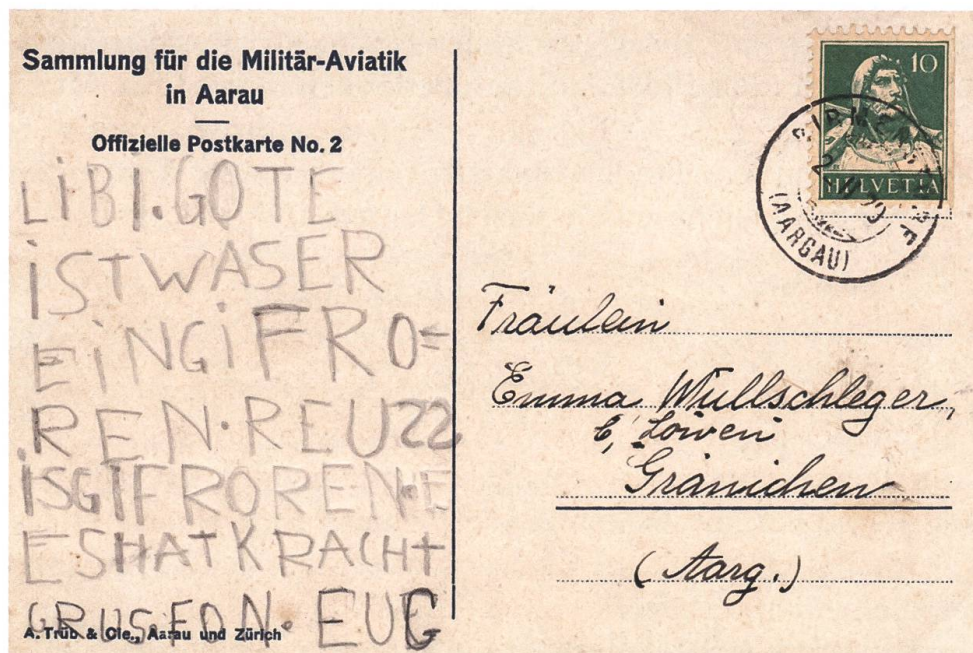 Sammlung für die Militär-Aviatik
in Aarau
Offizielle Postkarte No. 2
LiBI.GOTE
iSTWASER
EiNGiFRO=
REN.REUZZ
iSGIFROREN.E
ESHATKRACHT
GRUS.FON.EUG
A. Trüb & Cie., Aarau und Zürich
10
HELVETIA
(AARGAU)
Fräulein
Emma Wullschleger,
Löwen
Gränichen
(Aarg.)